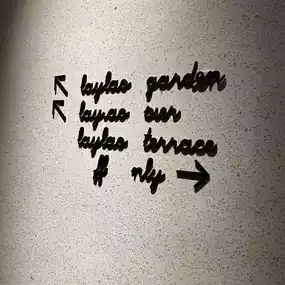 ↖ laylas garden
↖ laylas
laylas terrace
nly →